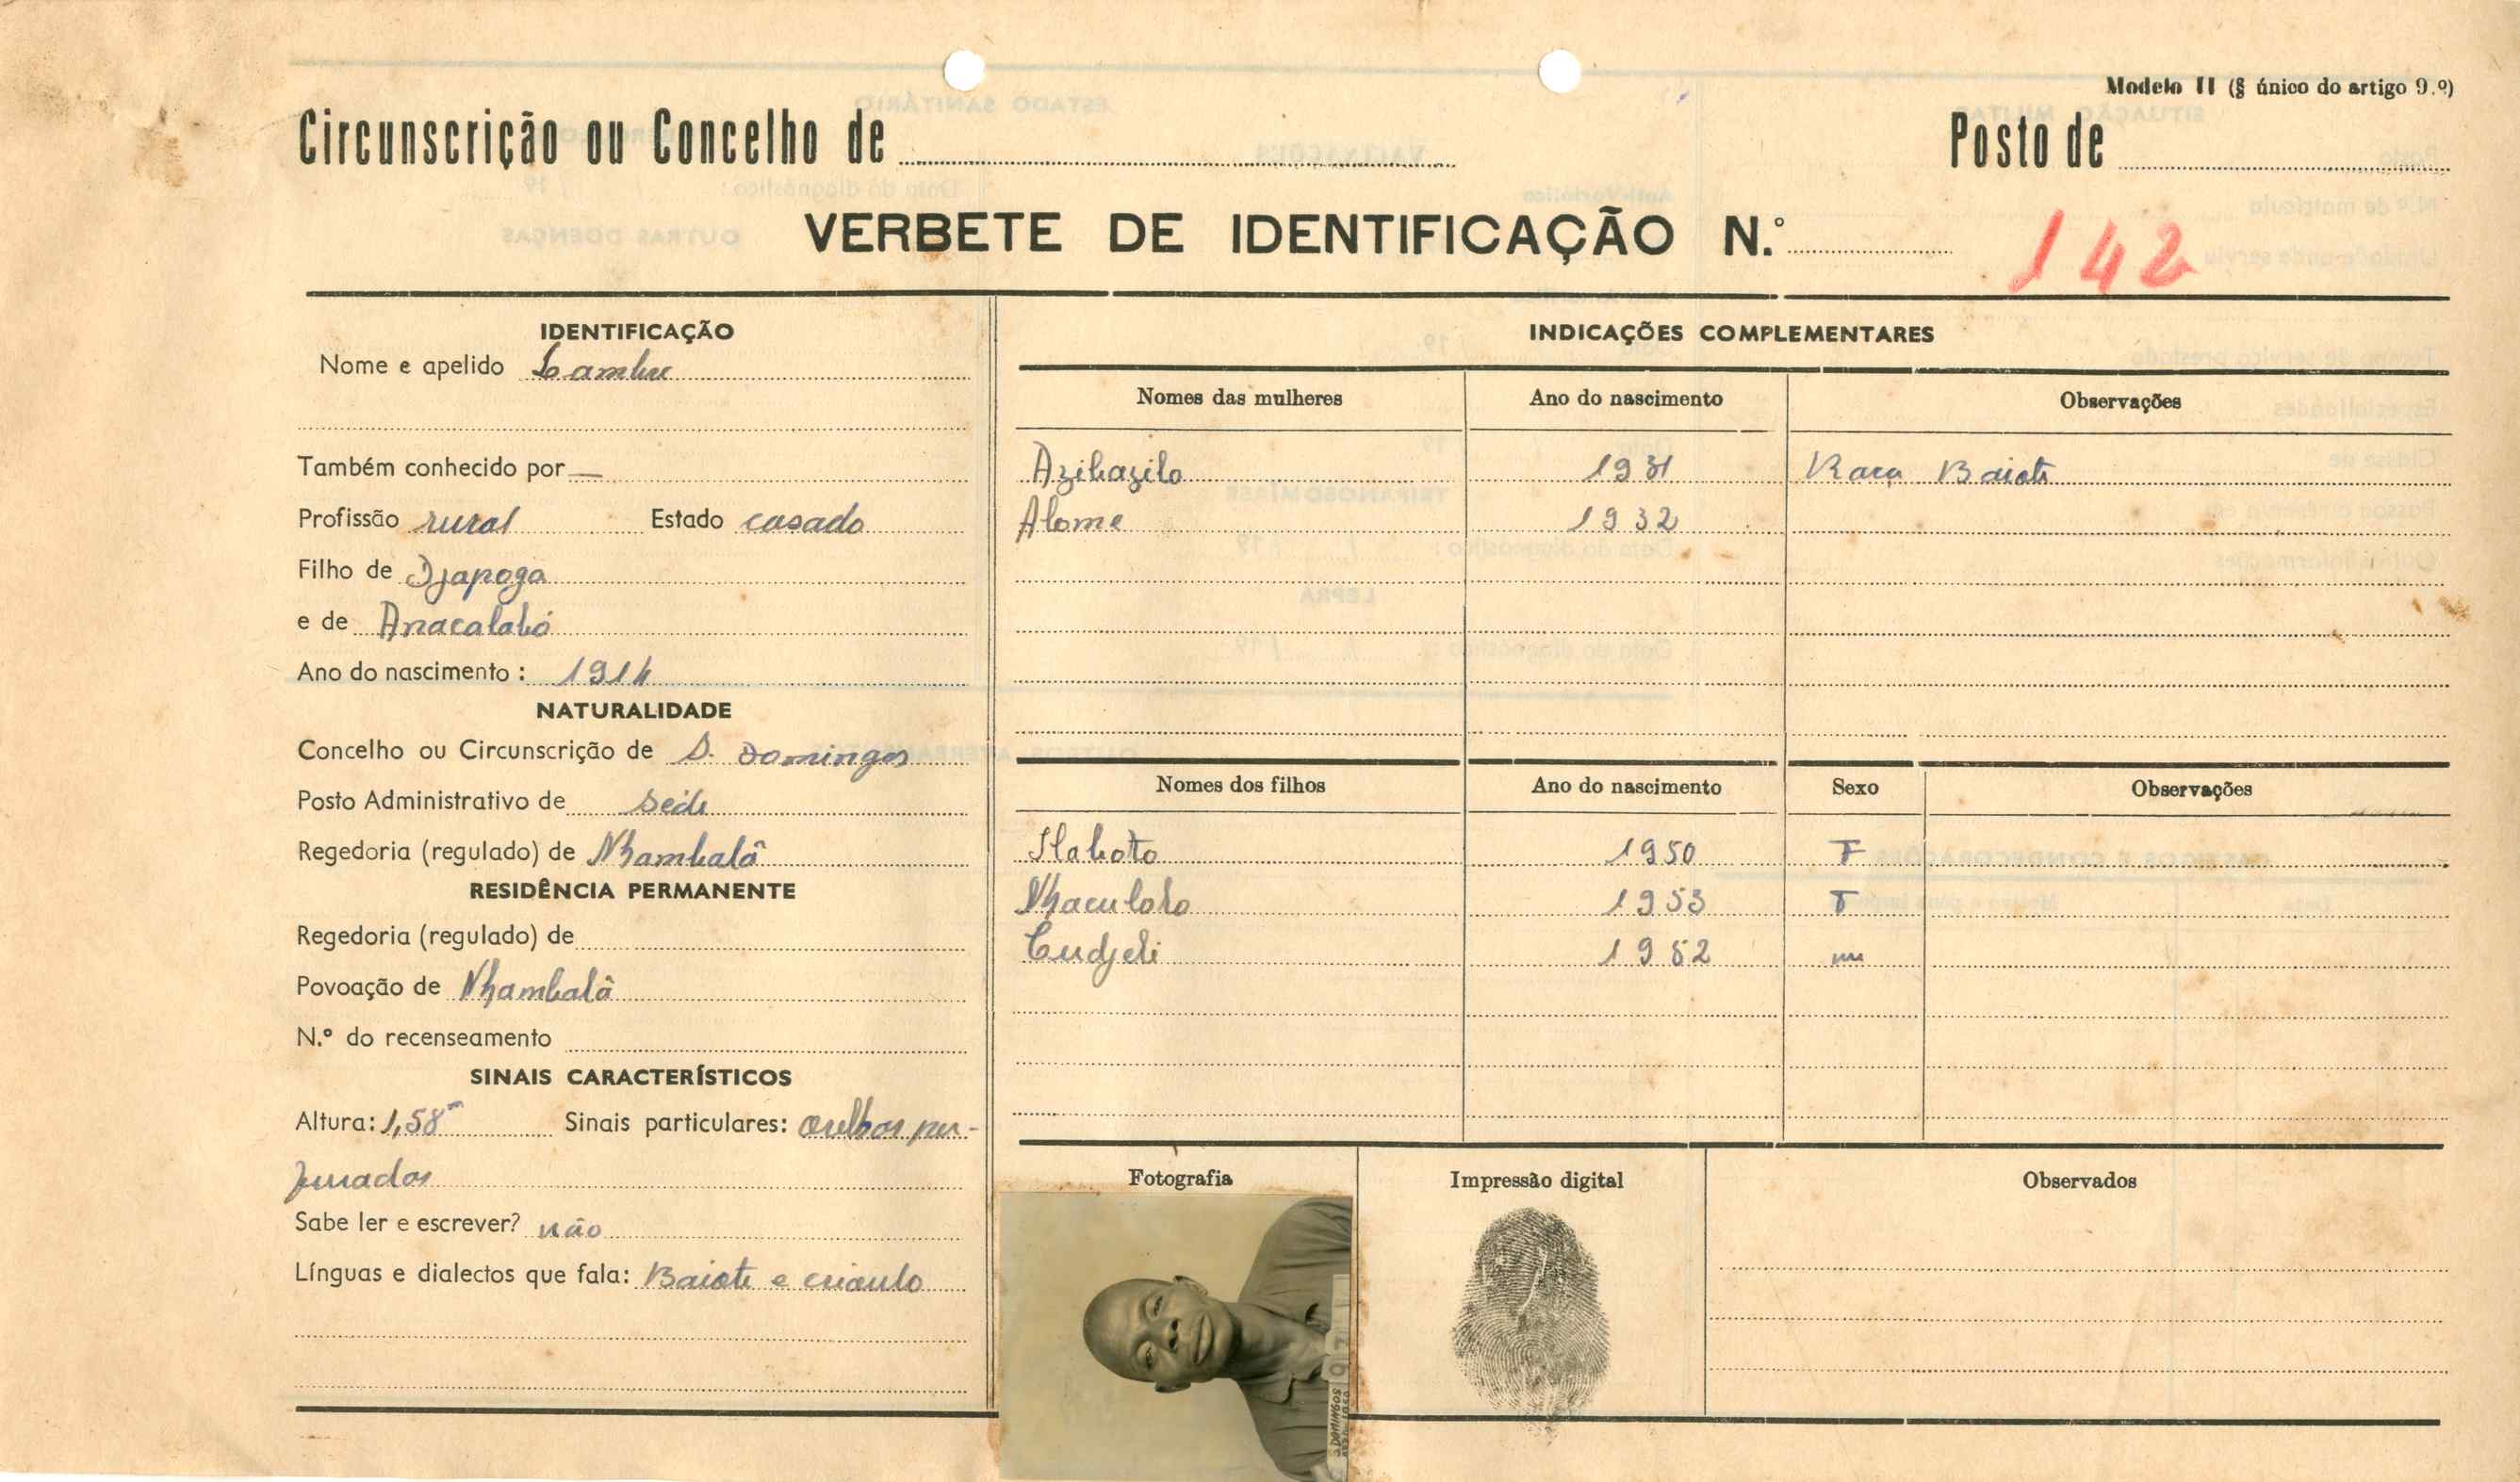 Modelo II (§ único do artigo 9.º)
Circunscrição ou Concelho de
Posto de
VERBETE DE IDENTIFICAÇÃO N.º 142
IDENTIFICAÇÃO
Nome e apelido Lambu
Também conhecido por —
Profissão rural Estado casado
Filho de Djapoga
e de Anacalabó
Ano do nascimento: 1914
NATURALIDADE
Concelho ou Circunscrição de S. Domingos
Posto Administrativo de Sede
Regedoria (regulado) de Nhambalã
RESIDÊNCIA PERMANENTE
Regedoria (regulado) de
Povoação de Nhambalã
N.º do recenseamento
SINAIS CARACTERÍSTICOS
Altura: 1,58m Sinais particulares: orelhas per-
furadas
Sabe ler e escrever? não
Línguas e dialectos que fala: Baiote e crioulo
INDICAÇÕES COMPLEMENTARES
Nomes das mulheres Ano do nascimento Observações
Azibazilo 1931 Raça Baiote
Alome 1932
Nomes dos filhos Ano do nascimento Sexo Observações
1950 F
Nhaculoto 1953 F
Cudjeli 1952 m
Fotografia Impressão digital Observados
DOMINGOS